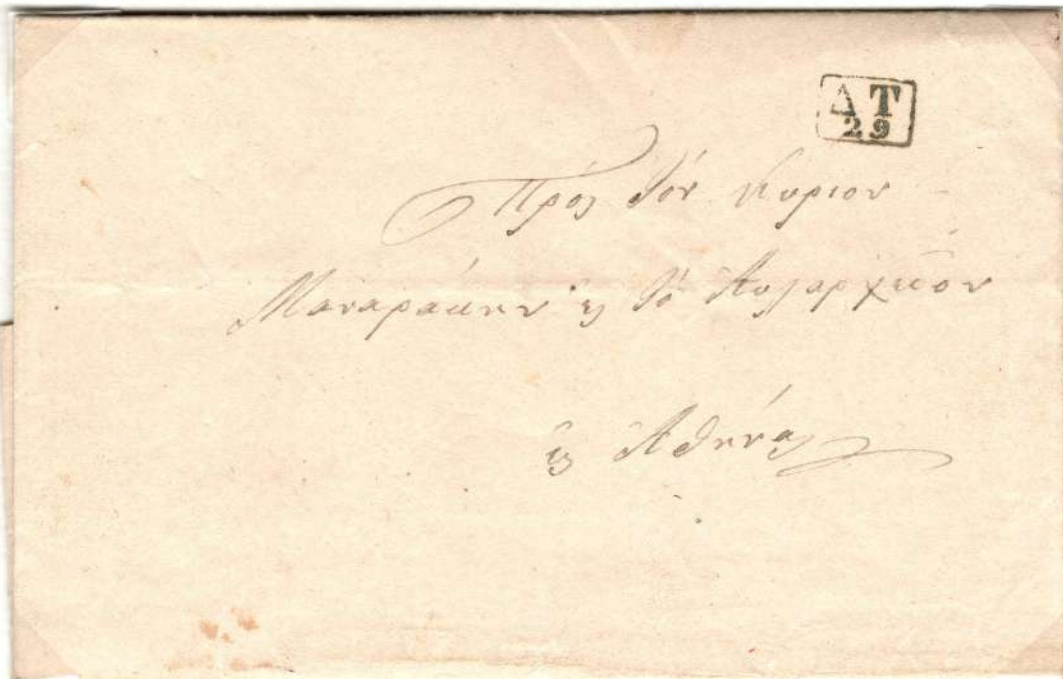 ΔΤ
29
Πρὸς τὸν Κύριον
Μαναράκην εἰς τὸ Αυλαρχεῖον
εἰς Ἀθήνας